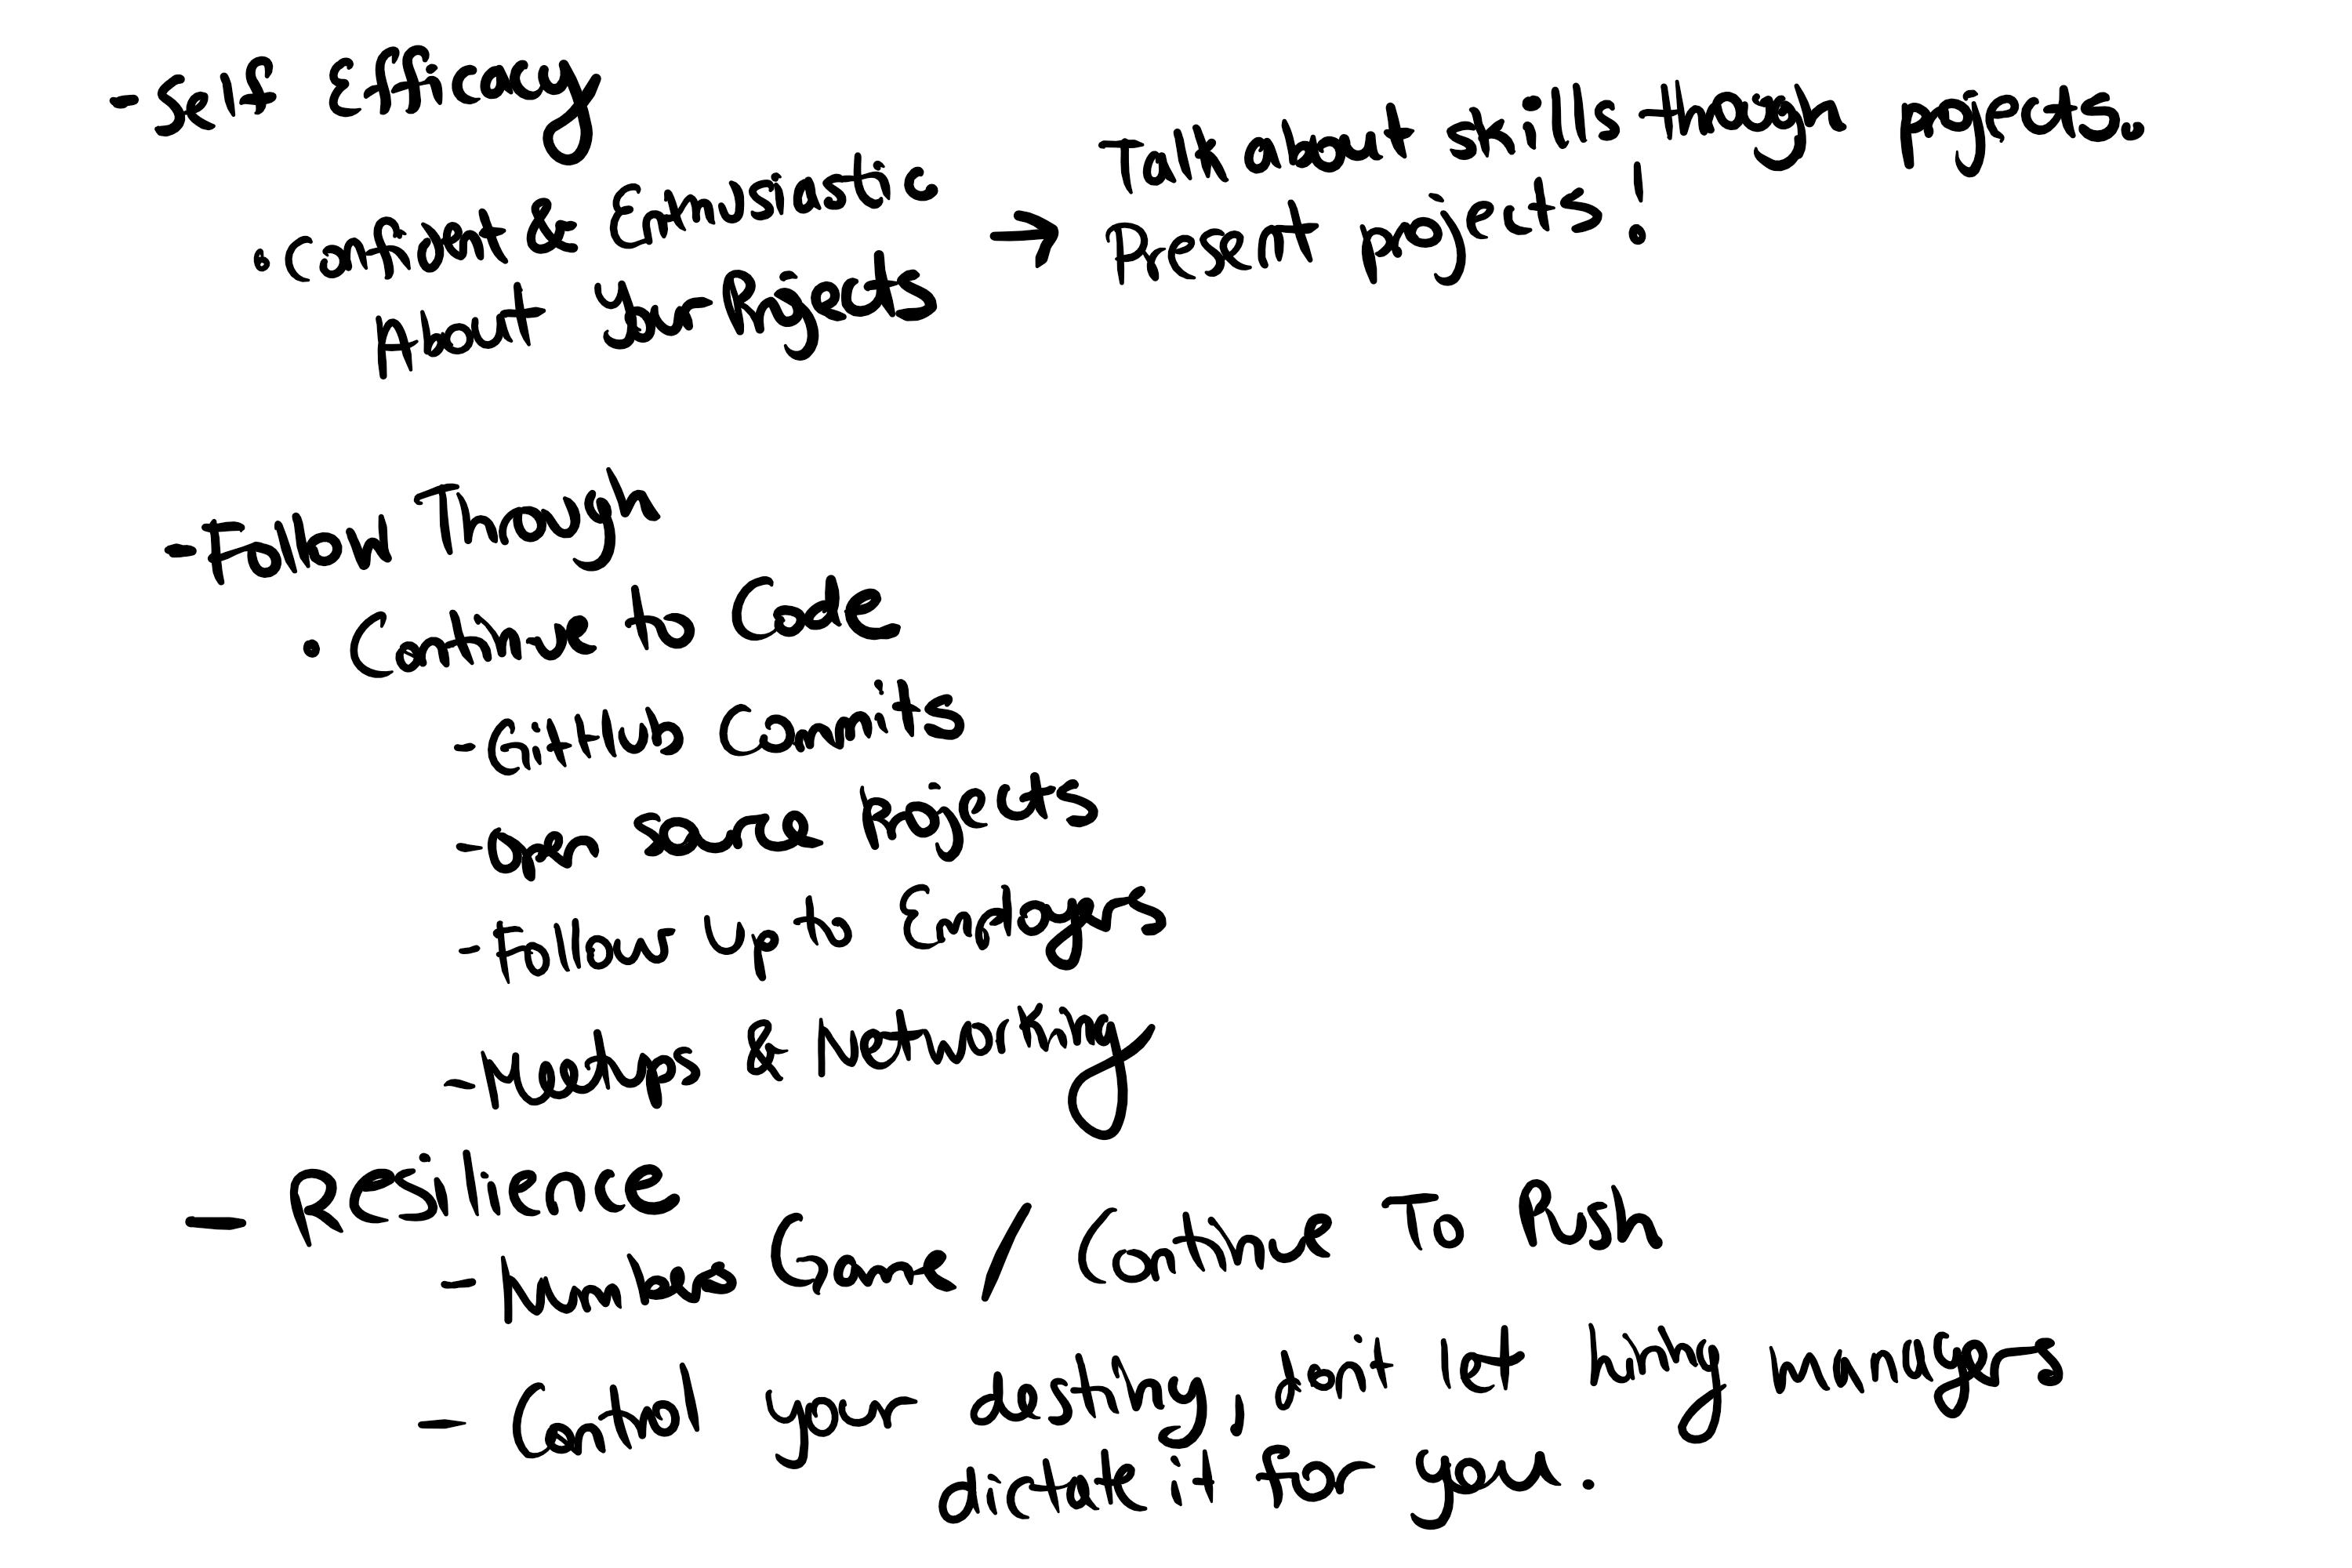 - Self Efficacy
• Confident & Enthusiastic
About Your Projects
→ Talk about skills through projects.
Present projects!
- Follow Through
• Continue to Code
- GitHub Commits
- Open source Projects
- Follow Up to Employers
- Meetups & Networking
- Resilience
- Numbers Game / Continue To Push
- Control your destiny, don't let hiring managers
dictate it for you.